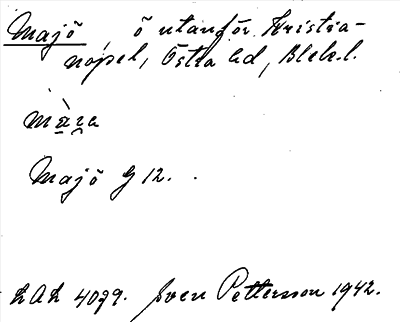 Majö, ö utanför Kristia-
nopel, Östra hd, Blek.l.
Majö G 12.
LAL 4079. Sven Pettersson 1942.